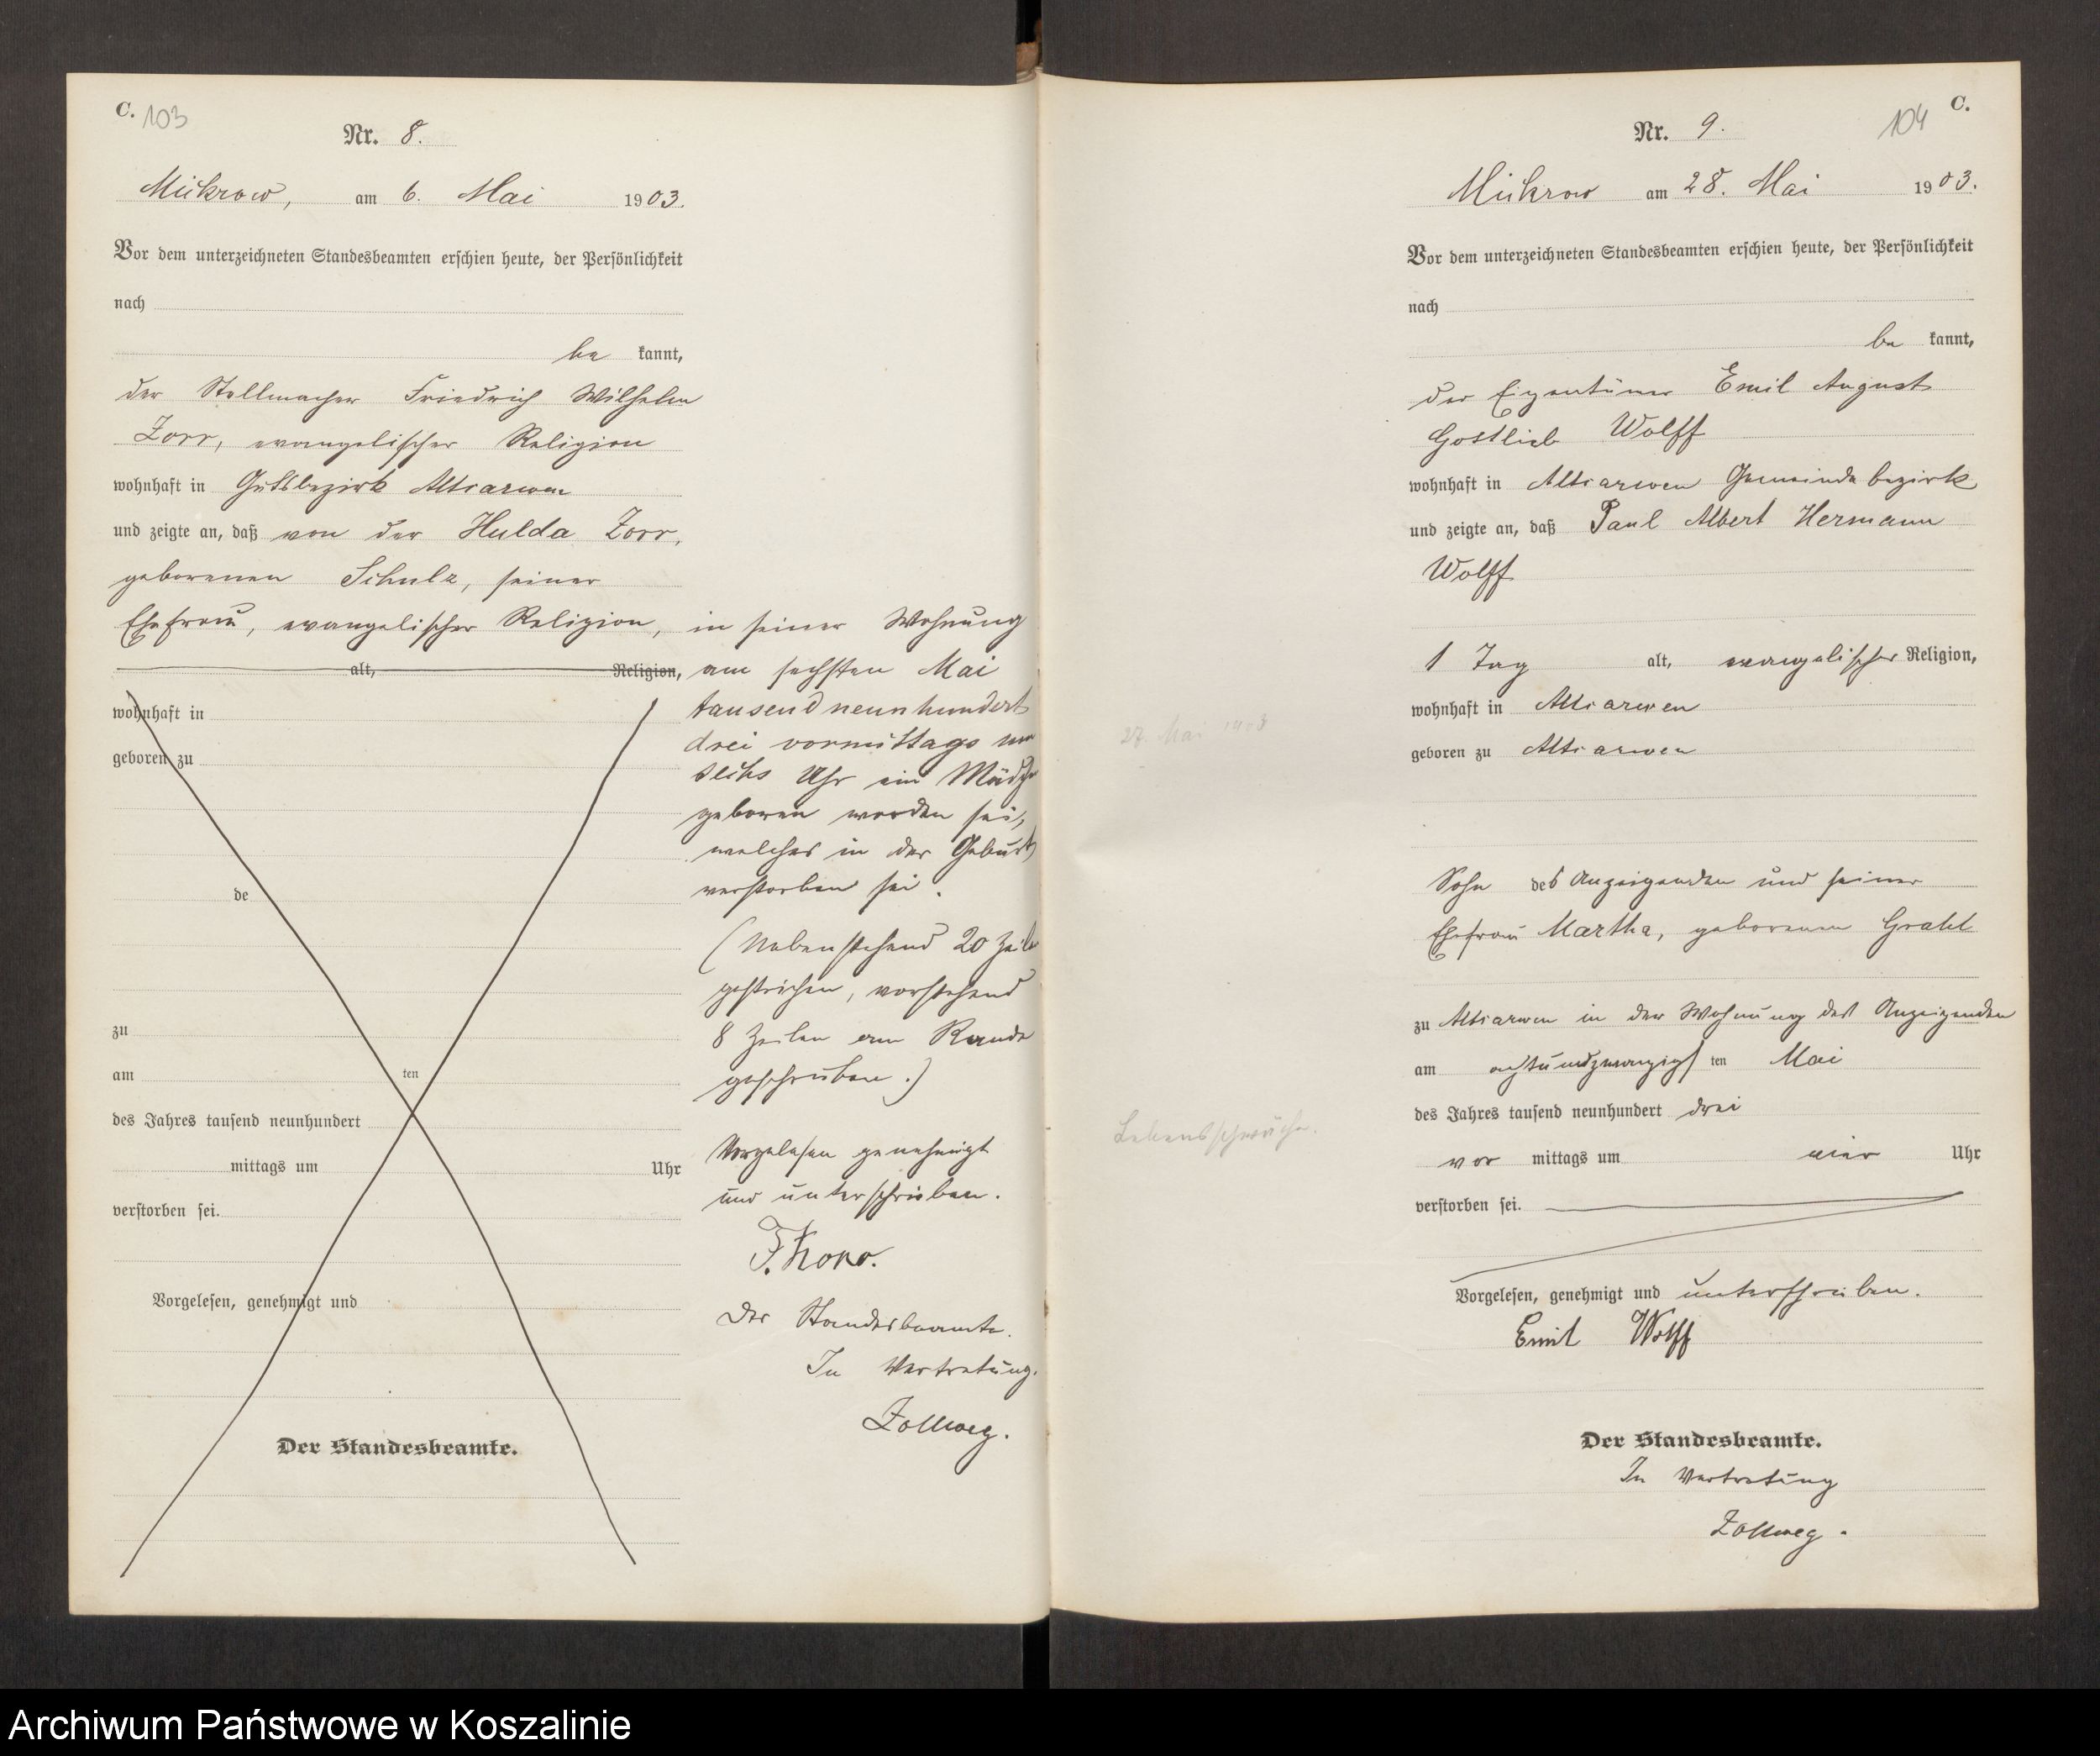 C. 103
Nr. 8.
Mückrow, am 6. Mai 1903.
Vor dem unterzeichneten Standesbeamten erschien heute, der Persönlichkeit
nach
be kannt,
der Stellmacher Friedrich Wilhelm
Zorr, evangelischer Religion
wohnhaft in Gutsbezirk Altsarwen
und zeigte an, daß von der Hulda Zorr,
geborenen Schulz, seiner
Ehefrau, evangelischer Religion,
alt, Religion,
wohnhaft in
geboren zu
de
zu
am ten
des Jahres tausend neunhundert
mittags um Uhr
verstorben sei.
Vorgelesen, genehmigt und
Der Standesbeamte.
in seiner Wohnung
am sechsten Mai
tausend neunhundert
drei vormittags um
sechs Uhr ein Mädchen
geboren worden sei,
welches in der Geburt
verstorben sei.
(Nebenstehend 20 Zeilen
gestrichen, vorstehend
8 Zeilen am Rande
geschrieben.)
Vorgelesen genehmigt
und unterschrieben.
Der Standesbeamte.
In Vertretung.
Zollweg.
C.
104
Nr. 9.
Mückrow am 28. Mai 1903.
Vor dem unterzeichneten Standesbeamten erschien heute, der Persönlichkeit
nach
be kannt,
der Eigentümer Emil August
Gottlieb Wolff
wohnhaft in Altsarwen Gemeindebezirk
und zeigte an, daß Paul Albert Hermann
Wolff
1 Tag alt, evangelischer Religion,
wohnhaft in Altsarwen
27. Mai 1903
geboren zu Altsarwen
Sohn des Anzeigenden und seiner
Ehefrau Martha, geborenen Grahl
zu Altsarwen in der Wohnung des Anzeigenden
am achtundzwanzigsten Mai
des Jahres tausend neunhundert drei
Lebensschwäche.
vor mittags um vier Uhr
verstorben sei.
Vorgelesen, genehmigt und unterschrieben.
Emil Wolff
Der Standesbeamte.
In Vertretung
Zollweg.
Archiwum Państwowe w Koszalinie